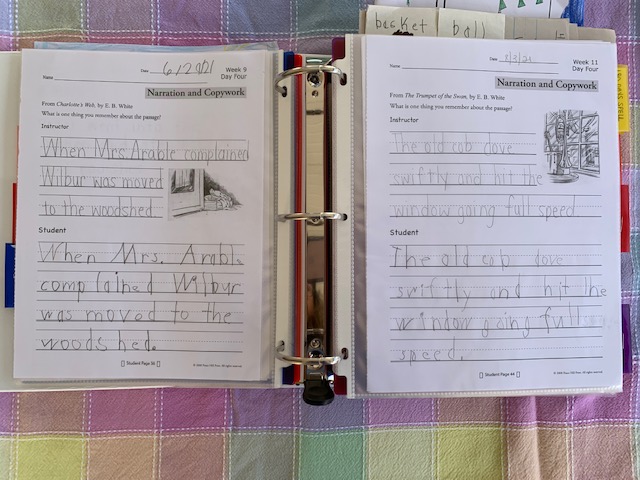 basket ball
Date 6/2021
Week 9
Day Four
Name
Narration and Copywork
From Charlotte's Web, by E. B. White
What is one thing you remember about the passage?
Instructor
When Mrs. Arable complained
Wilbur was moved
to the woodshed.
Student
When Mrs. Arable
complained Wilbur
was moved to the
woodshed.
Student Page 36
Date
Week 11
Day Four
Name
Narration and Copywork
From The Trumpet of the Swan, by E. B. White
What is one thing you remember about the passage?
Instructor
The old cob dove
swiftly and hit the
window going full speed
Student
The old cob dove
swiftly and hit the
window going full
speed.
Student Page 44